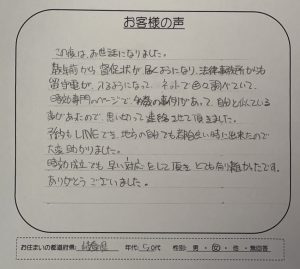 お客様の声
この度は、お世話になりました。
数年前から督促状が届くようになり、法律事務所からも
留守電が入るようになって、ネットで色々調べていて、
時効専門のページで多数の事例があって、自分と似ている
事があったので、思い切って連絡させて頂きました。
予約もLINEでき、地方の自分でも都合良い時に出来たので
大変助かりました。
時効成立でも早い対応をして頂きとても有り難かったです。
ありがとうございました。
お住まいの都道府県: 年代: 50代 性別: 男 ・ 女 ・ 他 ・ 無回答